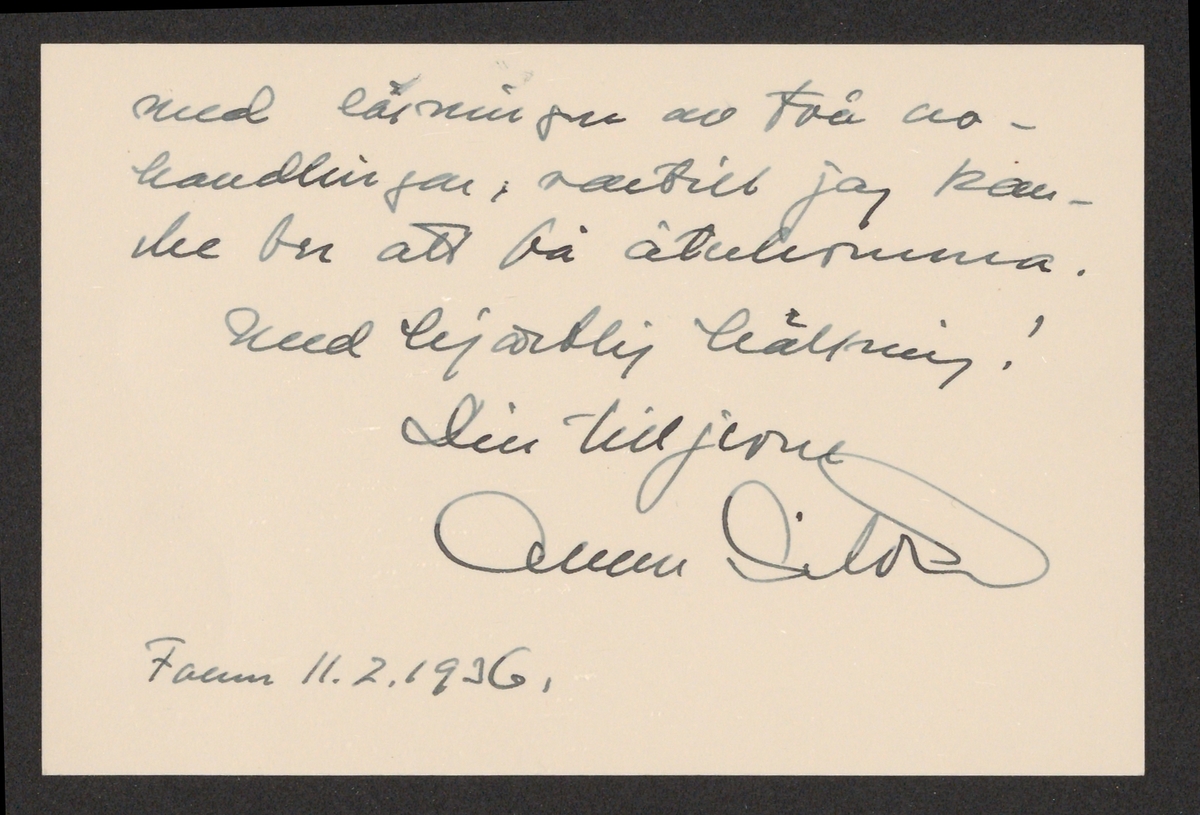 med läsningen av två av-
handlingar, vartill jag kan-
ske ber att få återkomma.
Med hjärtlig hälsning!
Din tillgivne
Anton
Falun 11.2.1936.